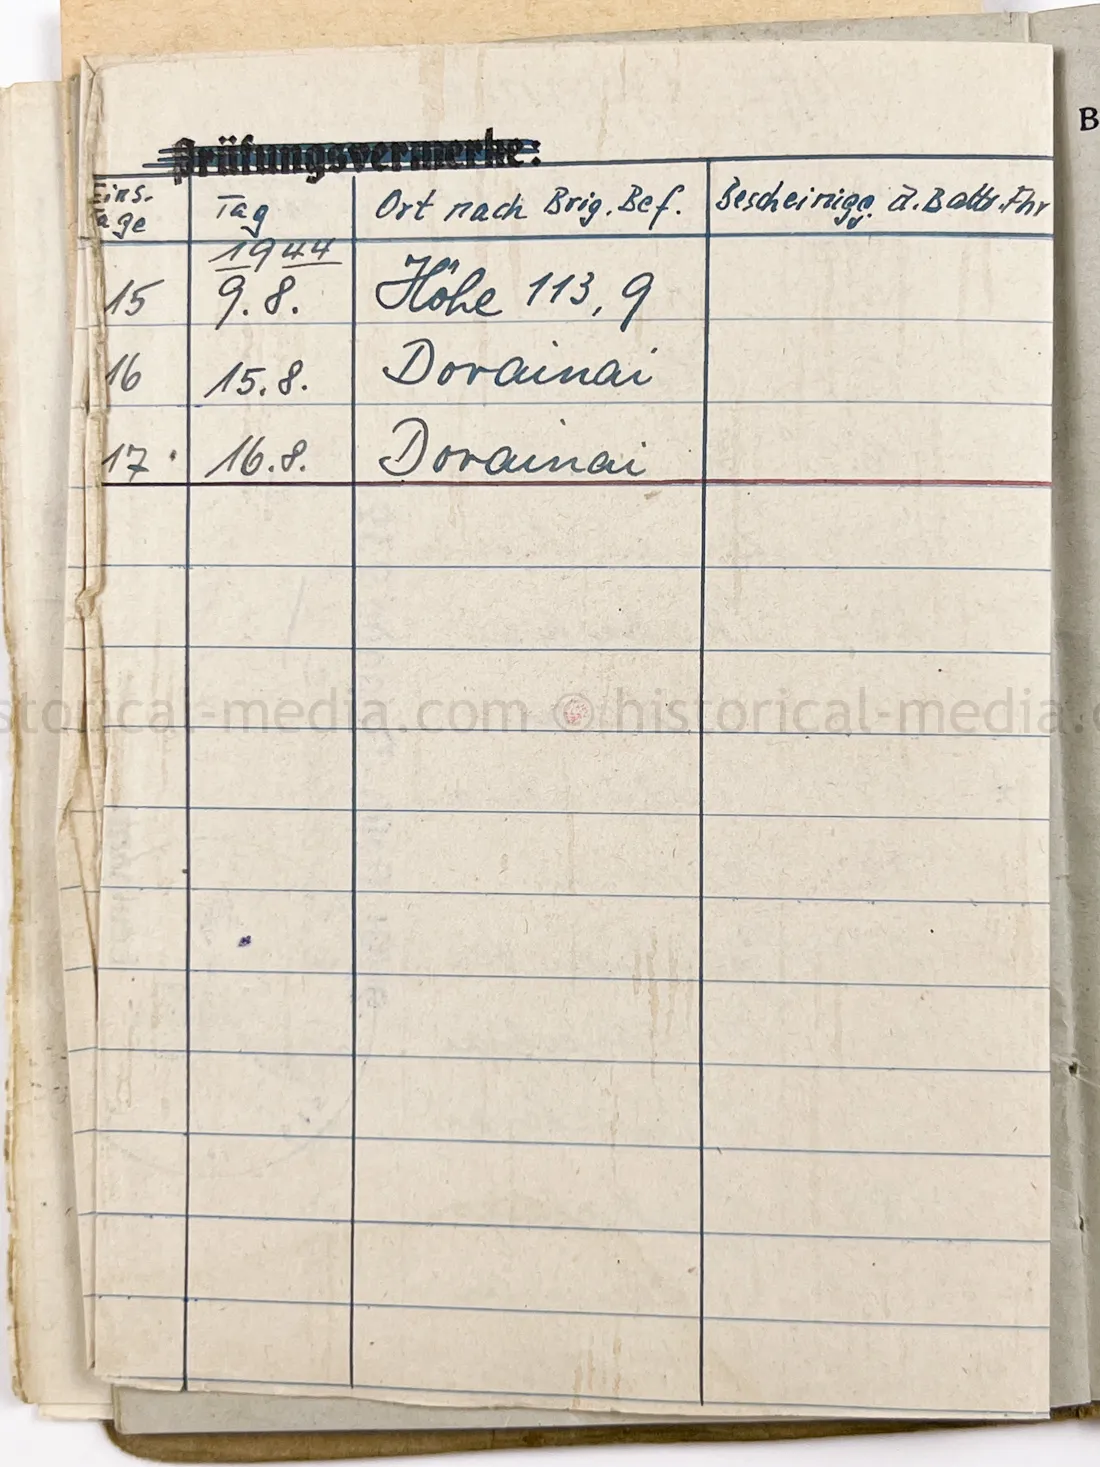 Prüfungsvermerke:
B
Eins. Tage
Tag
Ort nach Brig. Bef.
Bescheinigg. d. Battr. Fhr
1944
15 9.8. Höhe 113,9
16 15.8. Dorainai
17 16.8. Dorainai
storical-media.com © historical-media.c